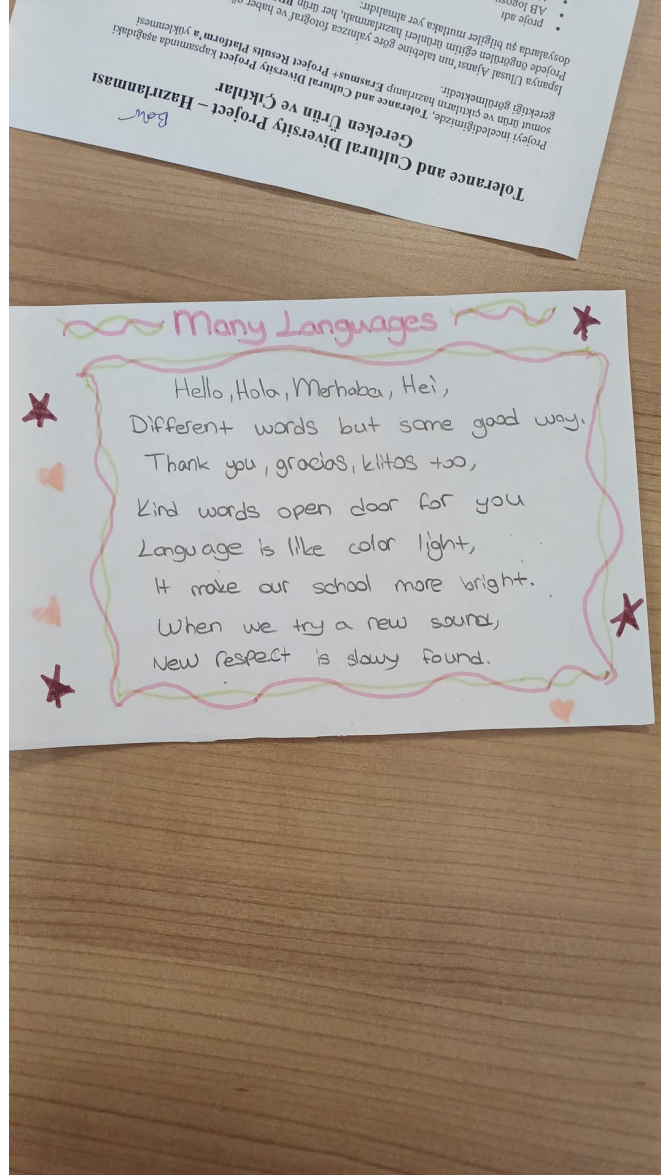 Tolerance and Cultural Diversity Project – Hazırlanması
Gereken Ürün ve Çıktılar
Projeyi incelediğimizde, Tolerance and Cultural Diversity Project kapsamında aşağıdaki
somut ürün ve çıktıların hazırlanıp Erasmus+ Project Results Platform'a yüklenmesi
gerektiği görülmektedir.
İspanya Ulusal Ajansı'nın talebine göre yalnızca fotoğraf ve haber
Projede öngörülen eğitim ürünleri hazırlanmalı, her ürün
dosyalarda şu bilgiler mutlaka yer almalıdır:
• proje adı
• AB logosu
Many Languages
Hello, Hola, Merhaba, Hei,
Different words but same good way.
Thank you, gracias, kiitos too,
Kind words open door for you
Language is like color light,
It make our school more bright.
When we try a new sound,
New respect is slowy found.